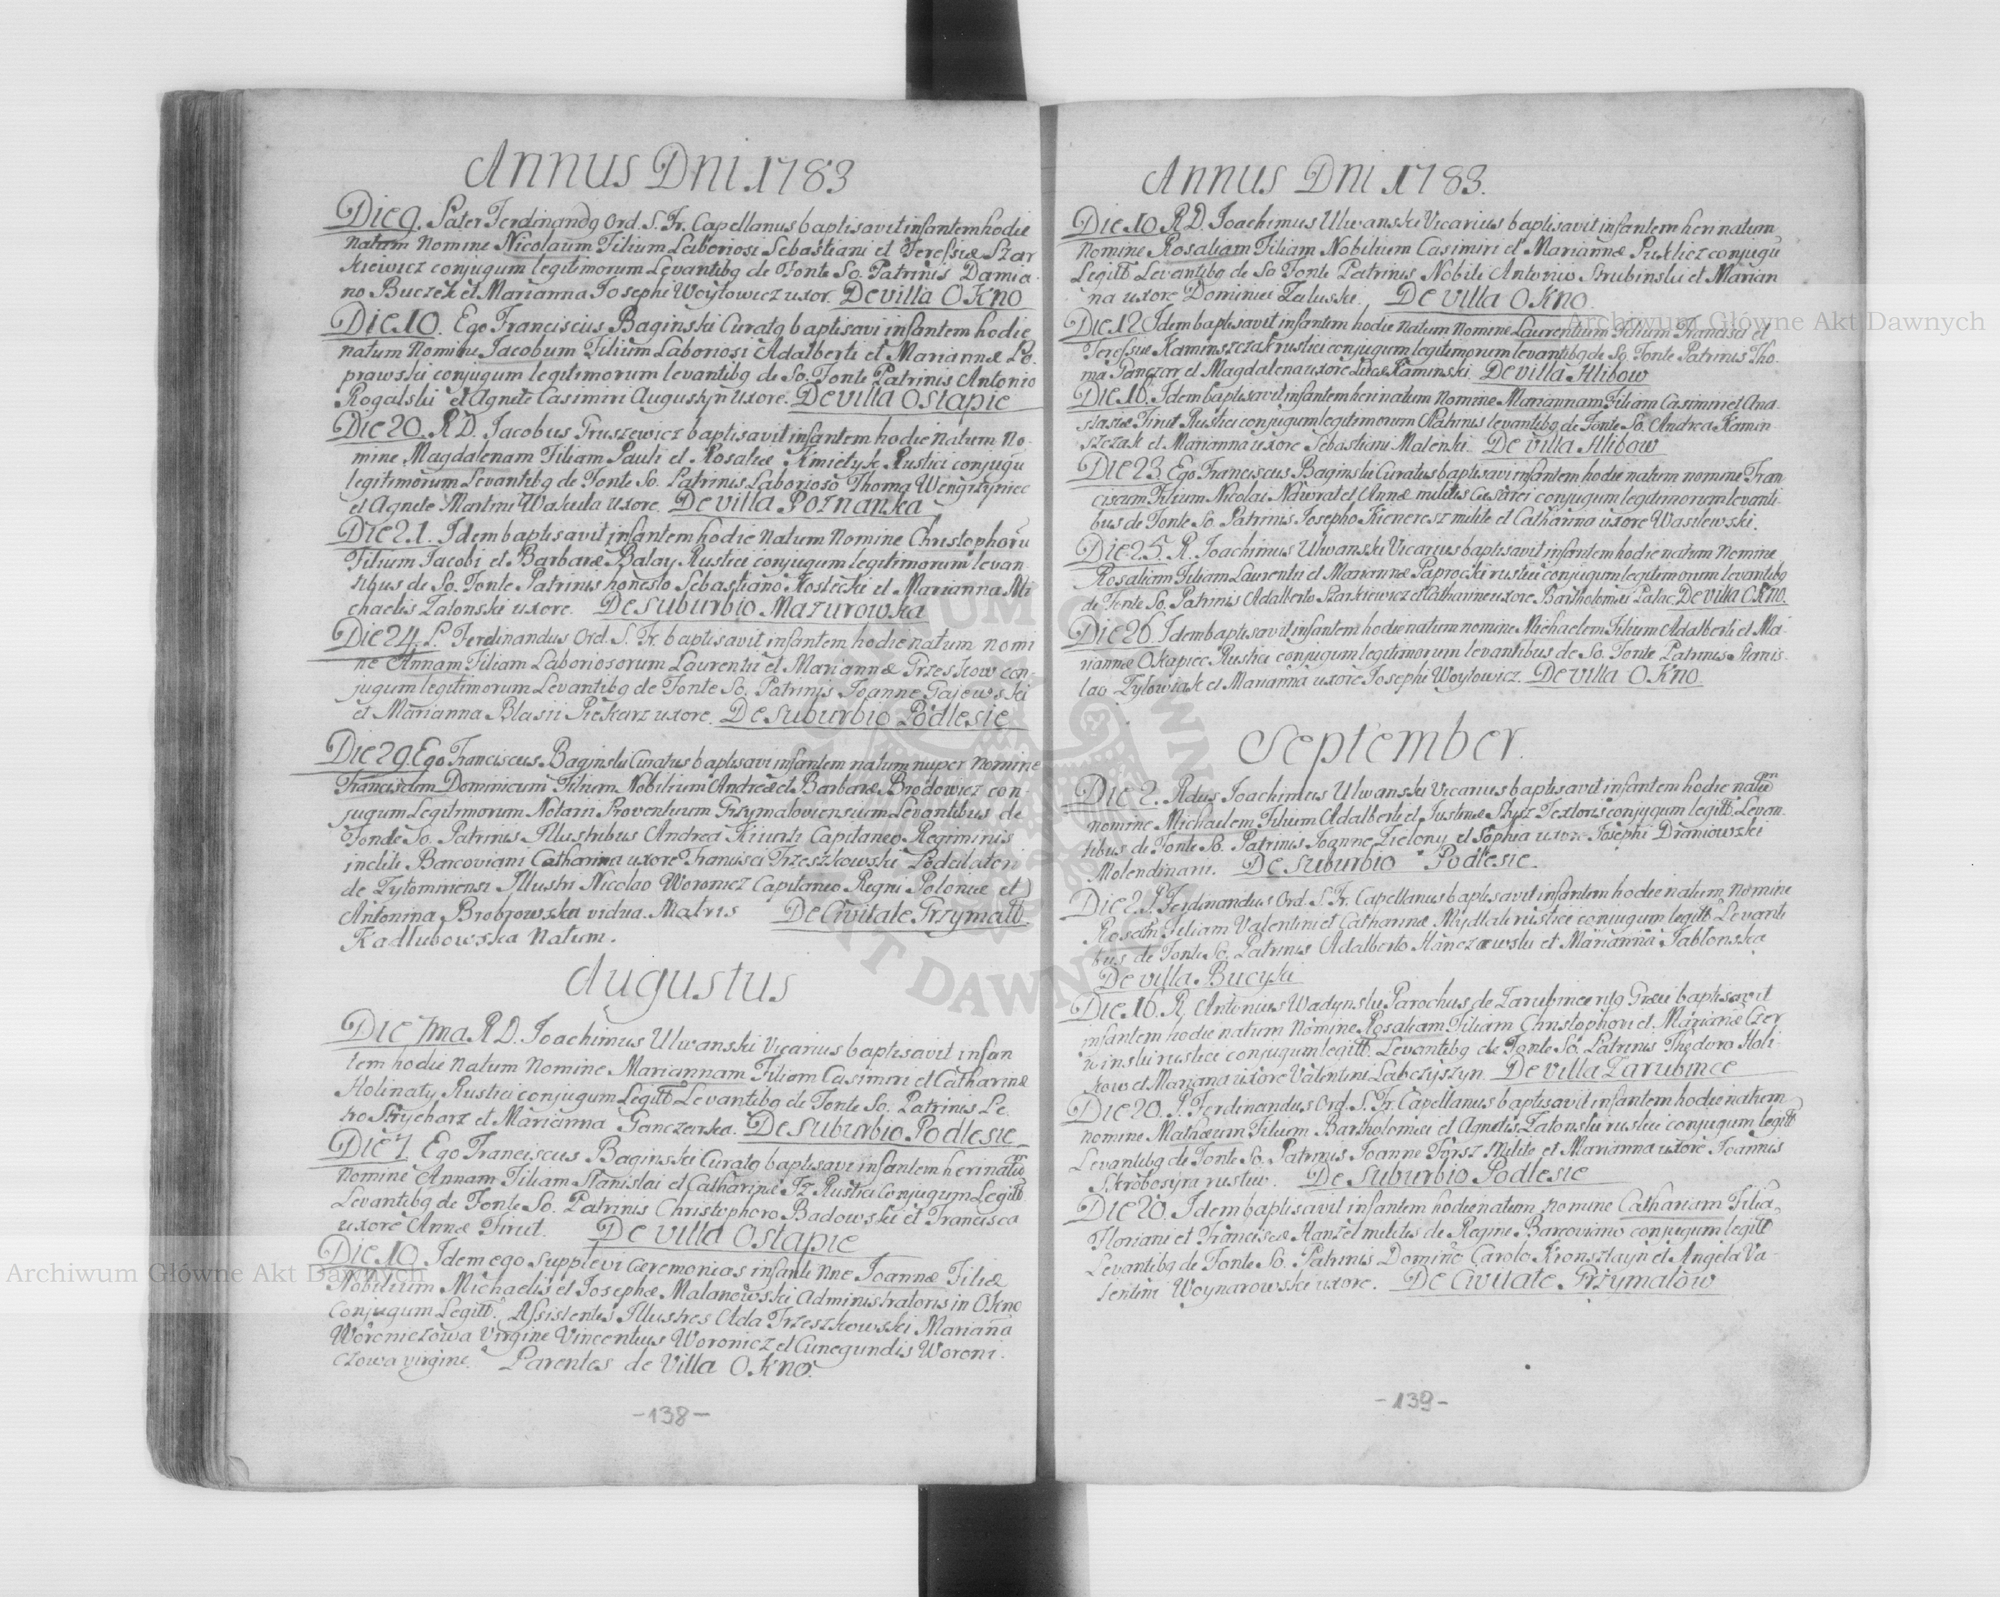 Annus Dni 1783
Die 9. Pater Ferdinandq Ord. S. Fr. Capellanus baptisavit infantem hodie
natum Nomine Nicolaum Filium Laboriosi Sebastiani et Teressiæ Szar
kiewicz conjugum legitimorum Levantibq de Fonte So. Patrinis Damia
no Buczek et Marianna Josephi Woytowicz uxor. De villa Okno
Die 10. Ego Franciscus Baginski Curatq baptisavi infantem hodie
natum Nomine Jacobum Filium Laboriosi Adalberti et Mariannæ Po
prawski conjugum legitimorum levantibq de So. Fonte Patrinis Antonio
Rogalski et Agnete Casimiri Augustyn uxore. De villa Ostapie
Die 20. R D. Jacobus Gruszewicz baptisavit infantem hodie natum No-
mine Magdalenam Filiam Pauli et Rosaliæ Kmietyk Rustici conjugu
legitimorum Levantibq de Fonte So. Patrinis Laborioso Thoma Wengrzyniec
et Agnete Martini Wakula uxore. De villa Poznanka
Die 21. Idem baptisavit infantem hodie natum Nomine Christophoru
Filium Jacobi et Barbaræ Balay Rustici conjugum legitimorum levan
tibus de So. Fonte Patrinis honesto Sebastiano Kostecki et Marianna Mi
chaelis Zatonski uxore. De Suburbio Mazurowka
Die 24. P. Ferdinandus Ord. S. Fr. baptisavit infantem hodie natum nomi
ne Annam Filiam Laboriosorum Laurentii et Mariannæ Grzeskow con-
jugum legitimorum Levantibq de Fonte So. Patrinis Joanne Gajewski
et Marianna Blasii Piekarz uxore. De Suburbio Podlesie
Die 29. Ego Franciscus Baginski Curatus baptisavi infantem natum nuper nomine
Franciscum Dominicum Filium Nobilium Andreæ et Barbaræ Brodowicz con-
jugum Legitimorum Notarii Proventuum Grzymaloviensium Levantibus de
Fonte So. Patrinis Illustribus Andrea Kiunti Capitaneo Regiminis
incliti Barcoviani Catharina uxore Francisci Trzeszkowski Podcilatori
de Zytomiriensi Illustri Nicolao Woronicz Capitaneo Regni Poloniæ et
Antonina Brobrowska vidua. Matris De Civitate Grzymałł
Kadłubowska Natum.
Augustus
Die 7ma R D. Joachimus Ulwanski Vicarius baptisavit infan
tem hodie natum Nomine Mariannam Filiam Casimiri et Catharinæ
Holinaty Rustici conjugum Legittm Levantibq de Fonte So. Patrinis Pe
tro Strycharz et Marianna Ganczarska. De Suburbio Podlesie
Die 7 Ego Franciscus Baginski Curatq baptisavi infantem heri natu
Nomine Annam Filiam Stanislai et Catharinæ Fz Rustici Conjugum Legittm
Levantibq de Fonte So. Patrinis Christophoro Badowski et Francisca
uxore Annæ Firut. De villa Ostapie
Die 10. Idem ego supplevi Ceremonias infanti Nne Joannæ Filiæ
Nobilium Michaelis et Josephæ Malanowski administratoris in Okno
Conjugum Legittm. Assistentes Illustres Ada Trzeszkowski Marianna
Woroniczowa Virgine Vincentius Woronicz et Cunegundis Woroni-
czowa virgine. Parentes de Villa Okno.
-138-
Annus Dni 1783.
Die 10. R D. Joachimus Ulwanski Vicarius baptisavit infantem heri natum
Nomine Rosaliam Filiam Nobilium Casimiri et Mariannæ Puxlicz conjugu
Legittm Levantibq de So Fonte Patrinis Nobili Antonio Srubinski et Marian
na uxore Dominici Zaluski. De villa Okno.
Die 12. Idem baptisavit infantem hodie natum nomine Laurentium Filium Francisci et
Teressiæ Kaminszczak rustici conjugum legitimorum levantibq de So. Fonte Patrinis Tho-
ma Ganczar et Magdalena uxore Lucæ Kaminski. De villa Hlibow
Die 16. Idem baptisavit infantem heri natum Nomine Mariannam Filiam Casimiri et Ana-
stasiæ Firut Rustici conjugum legitimorum Patrinis levantibq de Fonte So. Andrea Kamin-
szczak et Marianna uxore Sebastiani Malenki. De villa Hlibow
Die 23. Ego Franciscus Baginski Curatus baptisavi infantem hodie natum nomine Fran
ciscum Filium Nicolai Nawrat et Annæ militis Castrei conjugum legitimorum levanti-
bus de Fonte So. Patrinis Josepho Kieneresz milite et Catharina uxore Wasilewski.
Die 25. R. Joachimus Ulwanski Vicarius baptisavit infantem hodie natum Nomine
Rosaliam Filiam Laurentii et Mariannæ Paprocki rustici conjugum legitimorum levantibq
de Fonte So. Patrinis Adalberto Szarkiewicz et Catharina uxore Bartholomei Palac. De villa Okno.
Die 26. Idem baptisavit infantem hodie natum nomine Michaelem Filium Adalberti et Ma-
riannæ Okapiec Rustici conjugum legitimorum levantibus de So. Fonte Patrinis Stanis-
lao Zylowiak et Marianna uxore Josephi Woytowicz. De villa Okno
September.
Die 2. Rdus Joachimus Ulwanski Vicarius baptisavit infantem hodie natu
nomine Michaelem Filium Adalberti et Justinæ Slysz Textoris conjugum legittm. Levan-
tibus de Fonte So. Patrinis Joanne Zielony et Sophia uxore Josephi Draniowski
Molendinarii. De suburbio Podlesie
Die 2. P. Ferdinandus Ord. S. Fr. Capellanus baptisavit infantem hodie natum Nomine
Rosam Filiam Valentini et Catharinæ Mydlak rustici conjugum legittm Levanti
bus de Fonte So. Patrinis Adalberto Hanczarwski et Marianna Jablonska
De villa Bucyki
Die 16. R Antonius Wadynski Parochus de Zarubince ritq Græci baptisavit
infantem hodie natum Nomine Rosaliam Filiam Christophori et Mariannæ Czer
winski rustici conjugum legittm. Levantibq de Fonte So. Patrinis Thedoro Holi-
kow et Mariana uxore Valentini Labczyszyn. De villa Zarubince
Die 20. P. Ferdinandus Ord. S. Fr. Capellanus baptisavit infantem hodie natum
nomine Mathæum Filium Bartholomei et Agnetis Zatonski rustici conjugum legittm
Levantibq de Fonte So. Patrinis Joanne Fursz Milite et Marianna uxore Joannis
Skrobosyra rustici. De suburbio Podlesie
Die 20. Idem baptisavit infantem hodie natum Nomine Catharinam Filia
Floriani et Franciscæ Hanzel milites de Regine Barcoviano conjugum legittm
Levantibq de Fonte So. Patrinis Domino Carolo Kronsztayn et Angela Va-
lentini Woynarowski uxore. De Civitate Grzymalow
-139-
Archiwum Główne Akt Dawnych
Archiwum Główne Akt Dawnych